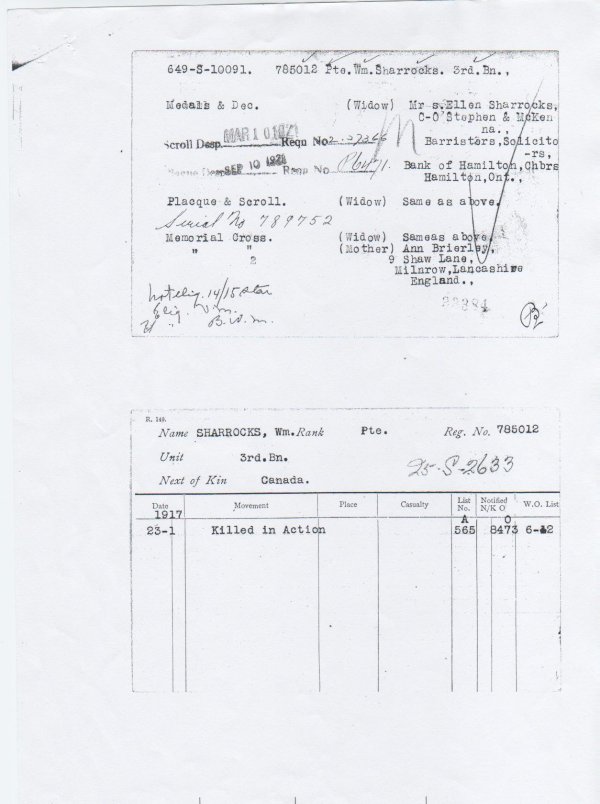 649-S-10091. 785012 Pte.Wm.Sharrocks. 3rd.Bn.,
Medals & Dec. (Widow) Mr s.Ellen Sharrocks,
C-O'Stephen & McKen
na.,
Scroll Desp. MAR 10 1921 Requ No Barristers,Solicito
-rs,
Desp SEP 10 Reqn No Bank of Hamilton,Chbrs
Hamilton,Ont.,
Placque & Scroll. (Widow) Same as above.
Serial No 789752
Memorial Cross. (Widow) Sameas above.
" " (Mother) Ann Brierley,
2 9 Shaw Lane,
Milnrow,Lancashire
England.,
not elig. 14/15 Star
Elig. V.m.
" B.W.m.
R. 149.
Name SHARROCKS, Wm. Rank Pte. Reg. No. 785012
Unit 3rd.Bn.
25-S-2633
Next of Kin Canada.
Date Movement Place Casualty List No. Notified N/K O W.O. List
1917 A O
23-1 Killed in Action 565 8473 6-12